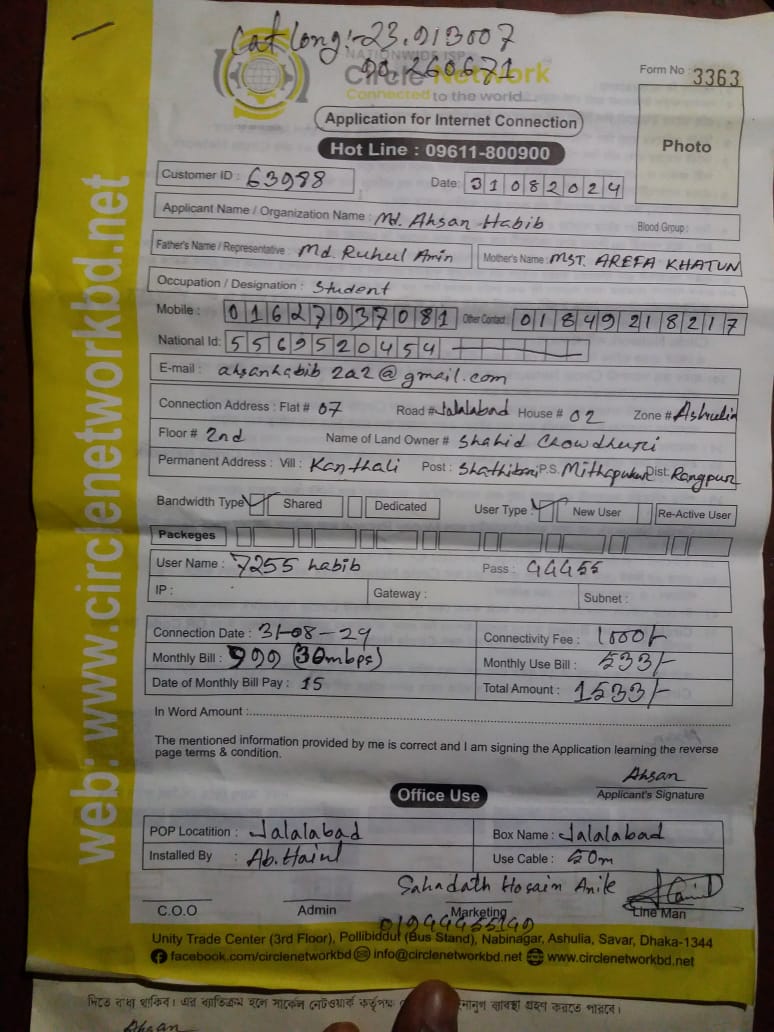 Cat long:- 23.913007
90.260671
NATIONWIDE ISP
Circle Network
Connected to the world
Form No : 3363
Application for Internet Connection
Hot Line : 09611-800900
Photo
Customer ID : 63988
Date: 31082024
Applicant Name / Organization Name : Md. Ahsan Habib Blood Group :
Father's Name / Representative : Md. Ruhul Amin Mother's Name : MST. AREFA KHATUN
Occupation / Designation : Student
Mobile : 01627937081 Other Contact : 01849218217
National Id: 5569520454
E-mail : ahsanhabib2a2@gmail.com
Connection Address : Flat # 07 Road # Jalalabad House # 02 Zone # Ashulia
Floor # 2nd Name of Land Owner # Shahid Chowdhuri
Permanent Address : Vill : Kanthali Post : Shathibari P.S. Mithapukur Dist: Rangpur
Bandwidth Type Shared Dedicated User Type : New User Re-Active User
Packeges
User Name : 7255 habib Pass : 44455
IP : Gateway : Subnet :
Connection Date : 31-08-24 Connectivity Fee : 1000/-
Monthly Bill : 999 (30mbps) Monthly Use Bill : 533/-
Date of Monthly Bill Pay : 15 Total Amount : 1533/-
In Word Amount :
The mentioned information provided by me is correct and I am signing the Application learning the reverse
page terms & condition.
Ahsan
Applicant's Signature
Office Use
POP Locatition : Jalalabad Box Name : Jalalabad
Installed By : Ab. Use Cable : 50m
Sahadath Hosain Anik
C.O.O Admin Marketing Line Man
Unity Trade Center (3rd Floor), Pollibiddut (Bus Stand), Nabinagar, Ashulia, Savar, Dhaka-1344
facebook.com/circlenetworkbd info@circlenetworkbd.net www.circlenetworkbd.net
web: www.circlenetworkbd.net
দিতে বাধ্য থাকিব। এর ব্যতিক্রম হলে সার্কেল নেটওয়ার্ক কর্তৃপক্ষ ব্যবস্থা গ্রহণ করতে পারবে।
Ahsan